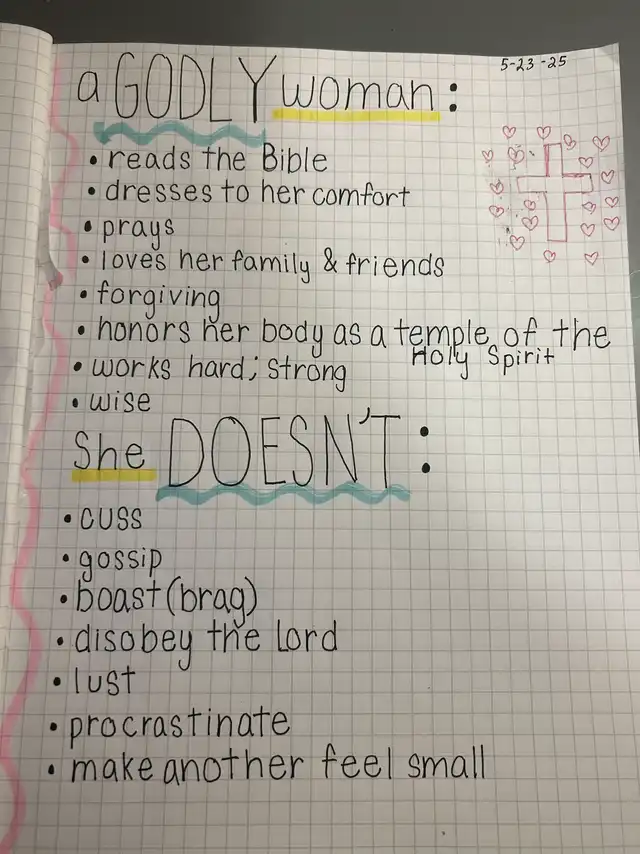 5-23-25
a GODLY woman:
• reads the Bible
• dresses to her comfort
• prays
• loves her family & friends
• forgiving
• honors her body as a temple of the
Holy Spirit
• works hard; strong
• wise
She DOESN'T:
• cuss
• gossip
• boast (brag)
• disobey the Lord
• lust
• procrastinate
• make another feel small